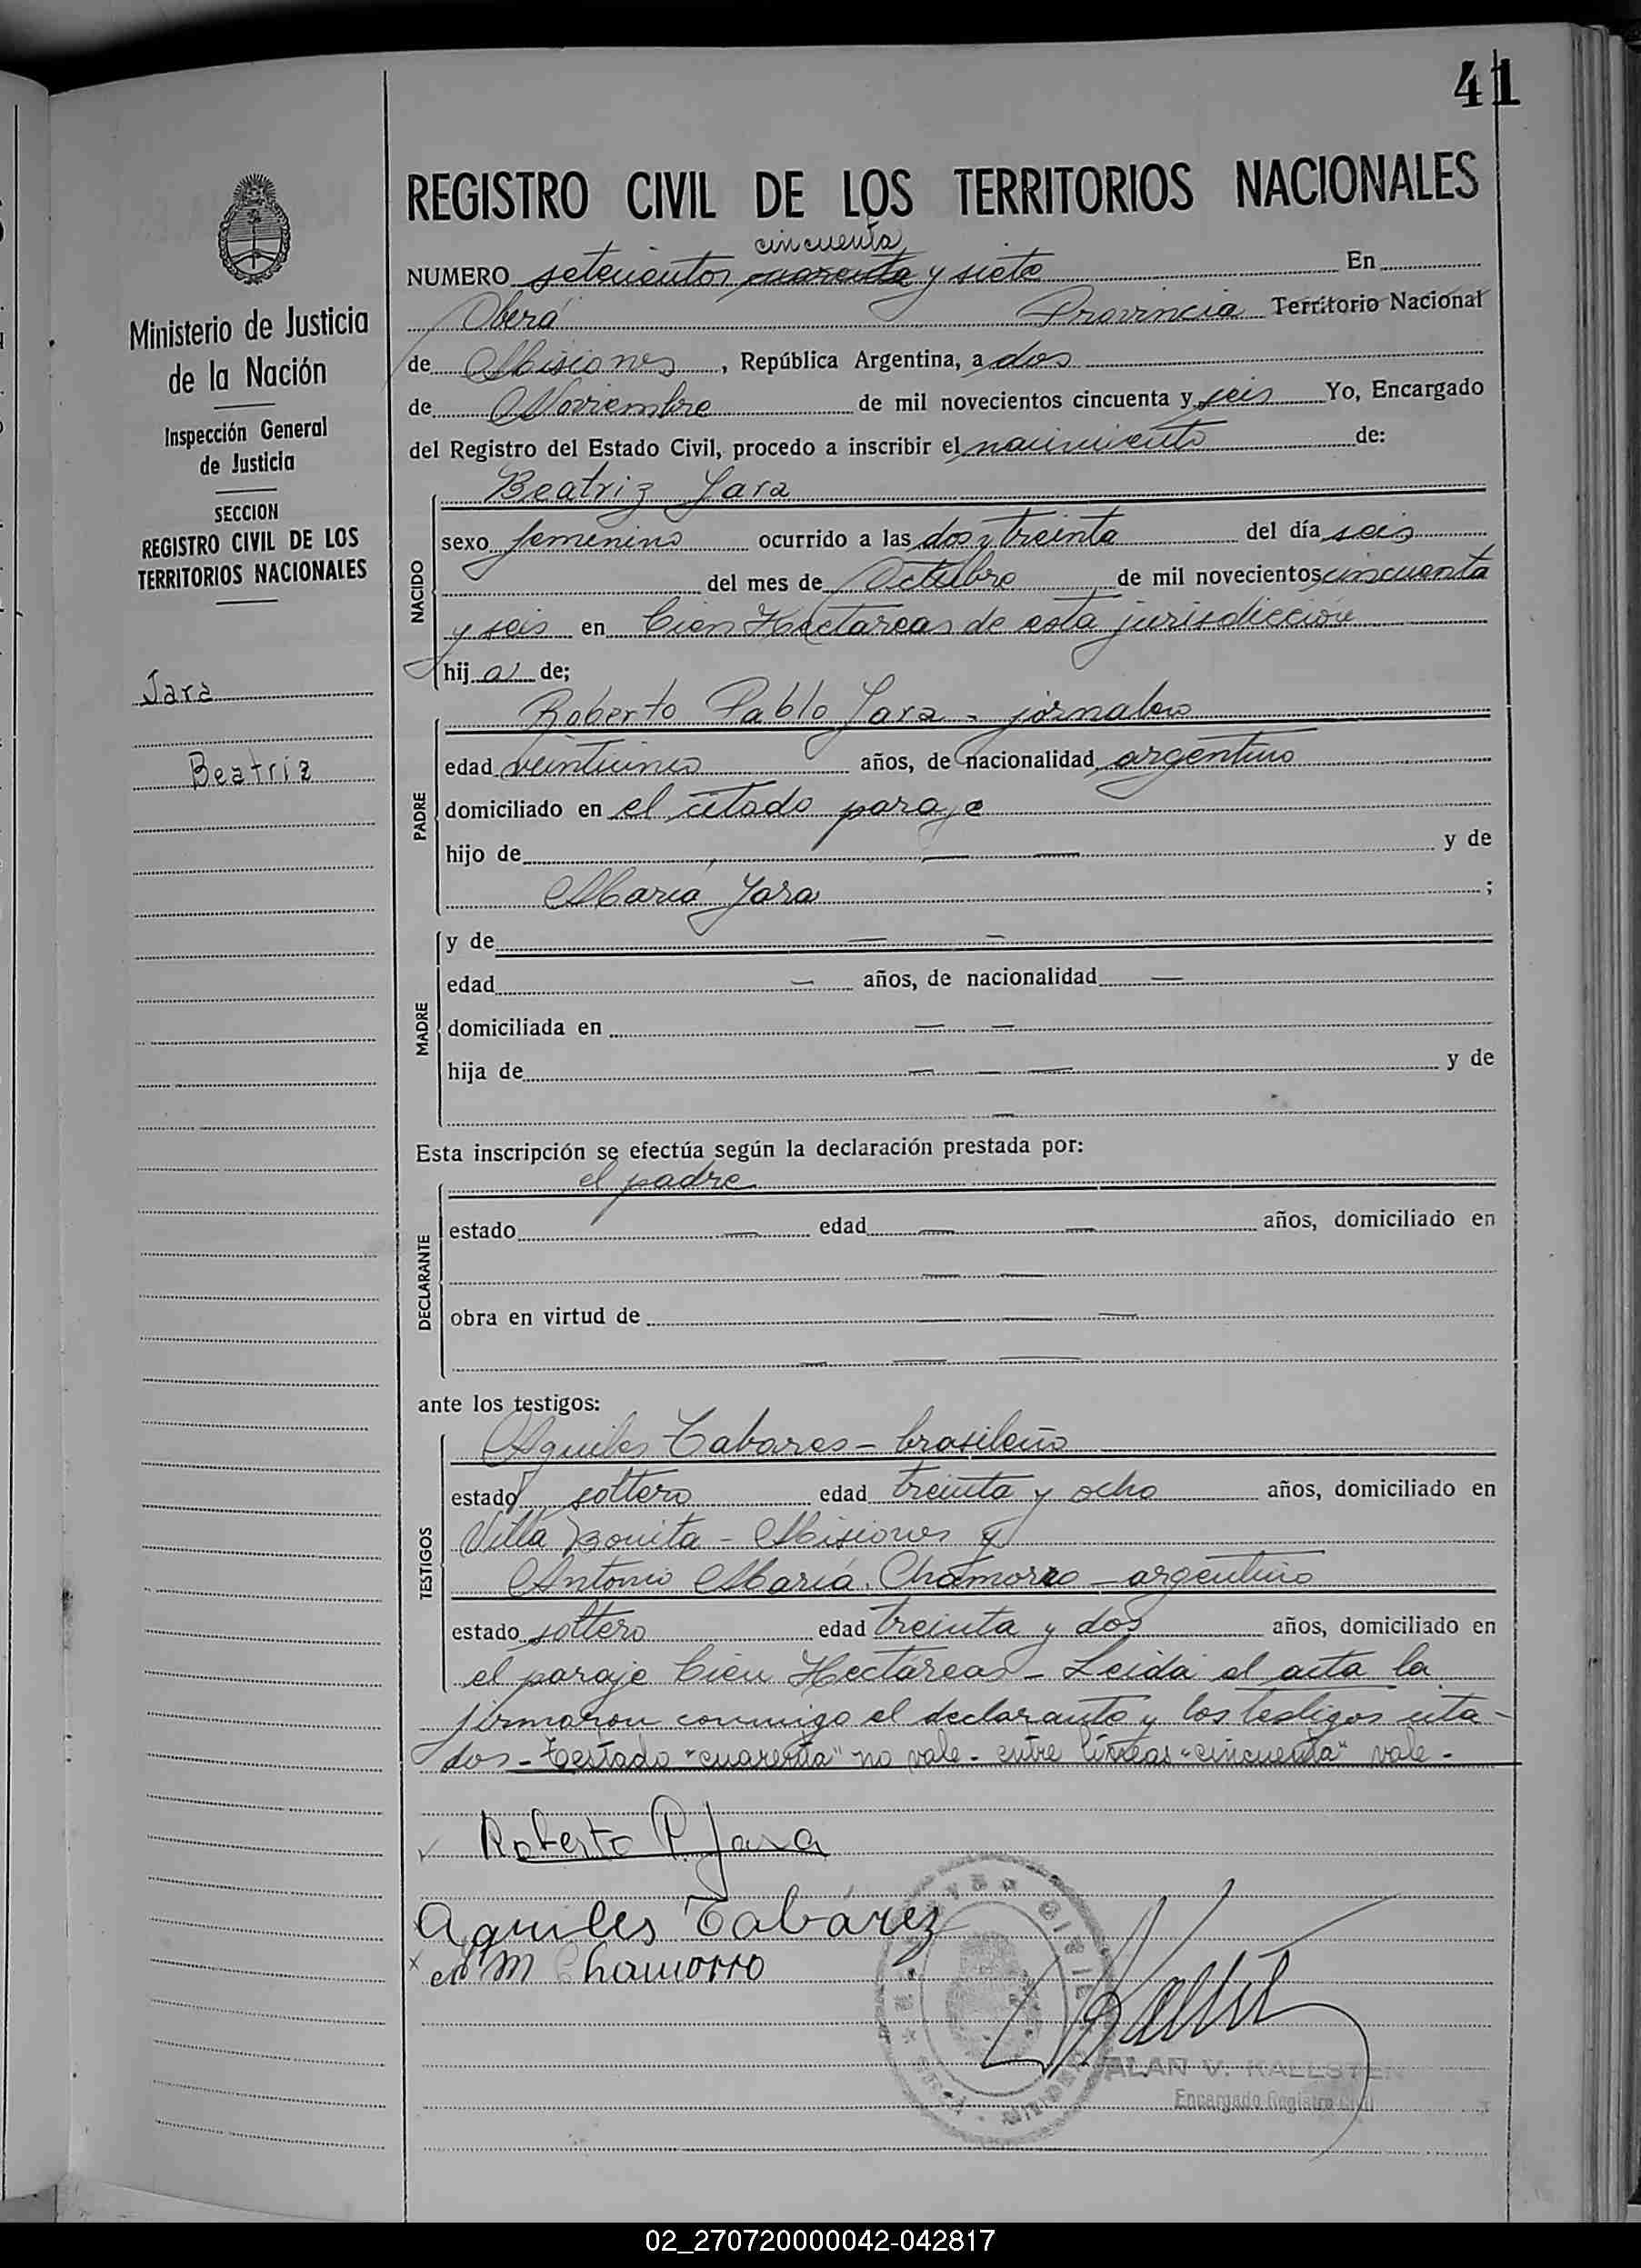 41
REGISTRO CIVIL DE LOS TERRITORIOS NACIONALES
cincuenta
NUMERO setecientos cuarenta y siete En
Oberá Provincia Territorio Nacional
de Misiones, República Argentina, a dos
de Noviembre de mil novecientos cincuenta y seis Yo, Encargado
del Registro del Estado Civil, procedo a inscribir el nacimiento de:
Ministerio de Justicia
de la Nación
Inspección General
de Justicia
SECCION
REGISTRO CIVIL DE LOS
TERRITORIOS NACIONALES
Jara
Beatriz
NACIDO
Beatriz Jara
sexo femenino ocurrido a las dos y treinta del día seis
del mes de Octubre de mil novecientos cincuenta
y seis en Cien Hectareas de esta jurisdicción
hija de;
PADRE
Roberto Pablo Jara - jornalero
edad veinticinco años, de nacionalidad argentino
domiciliado en el citado paraje
hijo de — — y de
María Jara ;
MADRE
y de — —
edad — años, de nacionalidad —
domiciliada en — —
hija de — — — y de
—
Esta inscripción se efectúa según la declaración prestada por:
DECLARANTE
el padre
estado — edad — — años, domiciliado en
— —
obra en virtud de — — —
— — —
ante los testigos:
TESTIGOS
Aquiles Tabares - brasileño
estado soltero edad treinta y ocho años, domiciliado en
Villa Bonita - Misiones y
Antonio María Chamorro - argentino
estado soltero edad treinta y dos años, domiciliado en
el paraje Cien Hectáreas - Leida el acta la
firmaron conmigo el declarante y los testigos cita-
dos - Testado "cuarenta" no vale - entre líneas "cincuenta" vale -
Roberto P. Jara
Aquiles Tabárez
M Chamorro
ALAN V. KALLSTEN
Encargado Registro Civil
02_270720000042-042817